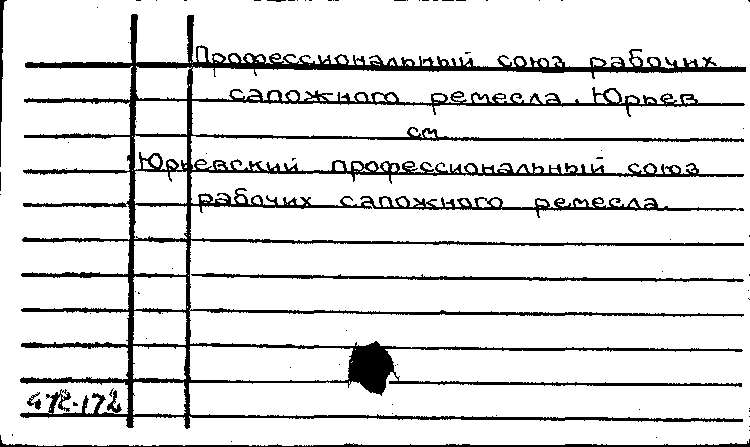 Профессиональный союз рабочих
сапожного ремесла. Юрьев
см.
Юрьевский профессиональный союз
рабочих сапожного ремесла.
472-172